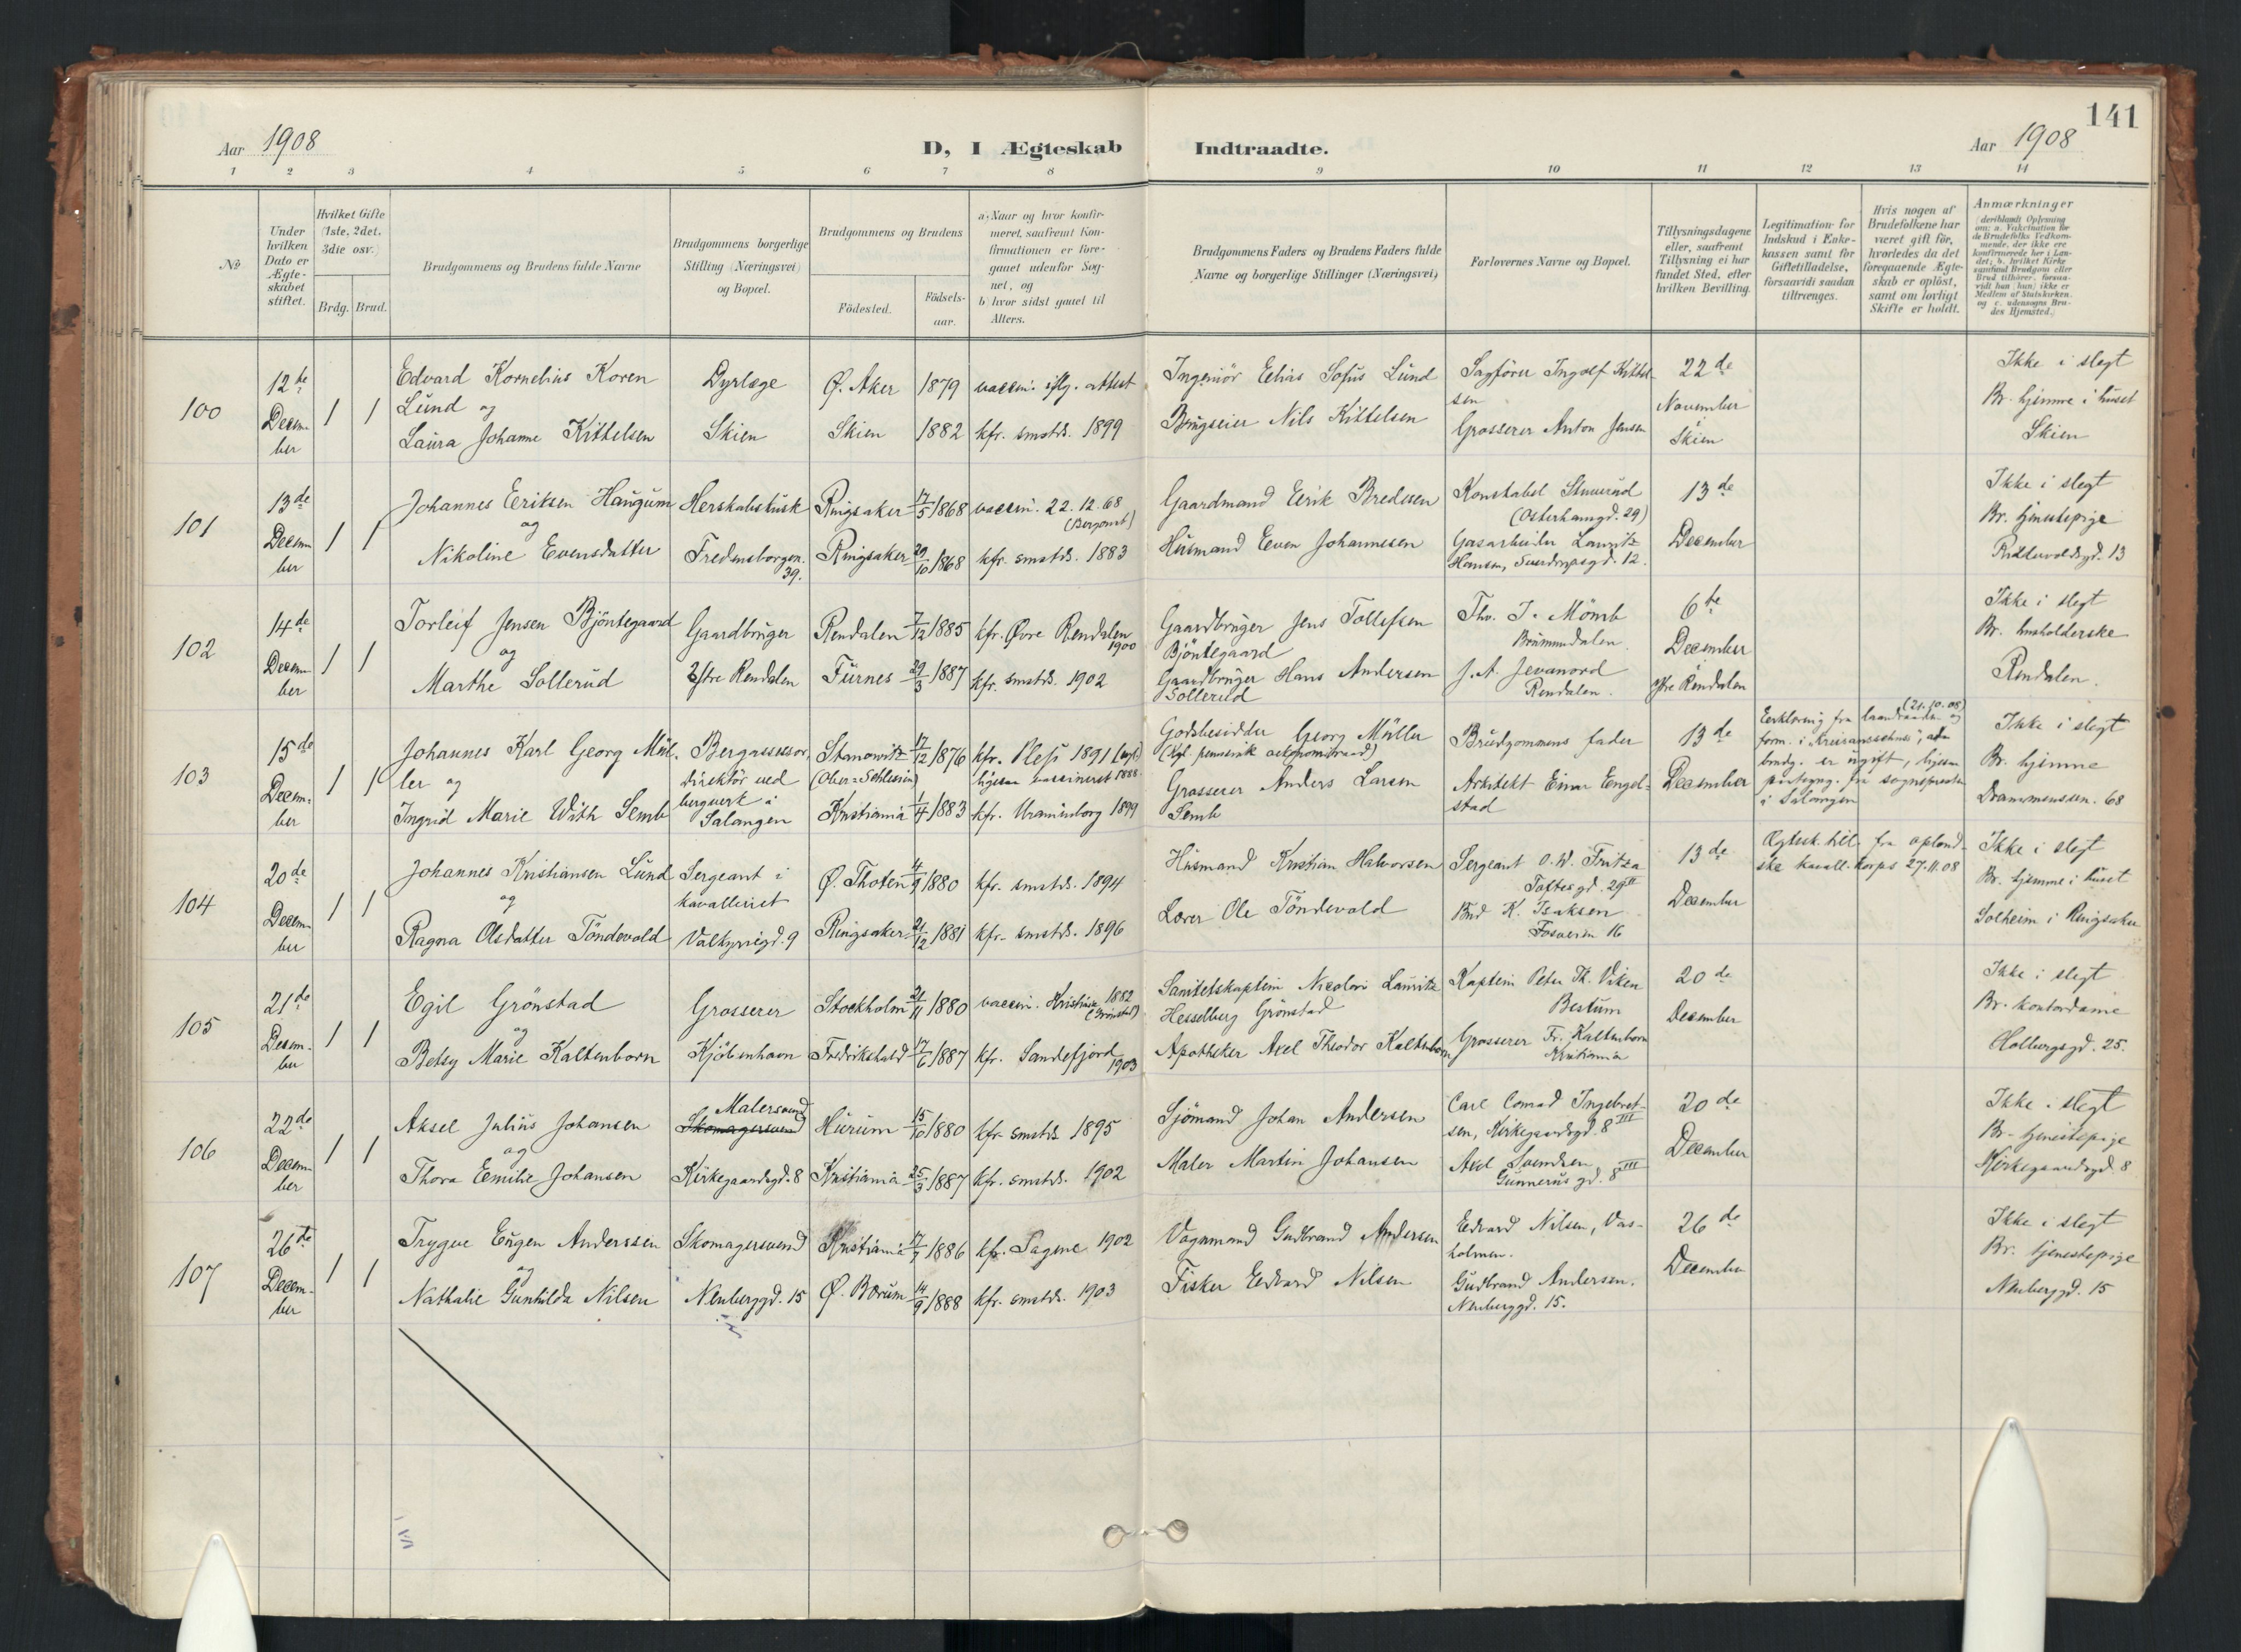 141
Aar 1908
D, I Ægteskab Indtraadte.
Aar 1908
1 2 3 4 5 6 7 8 9 10 11 12 13 14
No
Under hvilken Dato er Ægteskabet stiftet.
Hvilket Gifte (1ste, 2det, 3die osv.)
Brdg. Brud.
Brudgommens og Brudens fulde Navne
Brudgommens borgerlige Stilling (Næringsvei) og Bopæl.
Brudgommens og Brudens
Födested.
Födsels-aar.
a) Naar og hvor konfir-
meret, saafremt Kon-
firmationen er fore-
gaaet udenfor Sog-
net, og
b) hvor sidst gaaet til
Alters.
Brudgommens Faders og Brudens Faders fulde
Navne og borgerlige Stillinger (Næringsvei)
Forlovernes Navne og Bopæl.
Tillysningsdagene
eller, saafremt
Tillysning ei har
fundet Sted, efter
hvilken Bevilling.
Legitimation for
Indskud i Enke-
kassen samt for
Giftetilladelse,
forsaavidt saadan
tiltrænges.
Hvis nogen af
Brudefolkene har
været gift för,
hvorledes da det
foregaaende Ægte-
skab er oplöst,
samt om lovligt
Skifte er holdt.
Anmærkninger
(deriblandt Oplysning
om: a. Vakcination for
de Brudefolks Vedkom-
mende, der ikke ere
konfirmerede her i Lan-
det; b. hvilket Kirke-
samfund Brudgom eller
Brud tilhörer, forsaa-
vidt han (hun) ikke er
Medlem af Statskirken,
og c. udensogns Bru-
des Hjemsted.)
100
12te Decem-
ber
1 1
Edvard Kornelius Koren
Lund og
Laura Johanne Kittelsen
Dyrlæge
Skien
Ø. Aker 1879
Skien 1882
vaccin. iflg. attest
kfr. smstds. 1899
Ingeniör Elias Sofus Lund
Brugseier Nils Kittelsen
Sagförer Ingolf Kittel-
sen
Grosserer Anton Jensen
22de
November
Skien
Ikke i slegt
Br. hjemme i huset
Skien
101
13de
Decem
ber
1 1
Johannes Eriksen Haugum
og
Nikoline Evensdatter
Herskabskusk
Fredensborgvn.
39.
Ringsaker 17/5 1868
Ringsaker 29/10 1868
vaccin. 22.12.68
kfr. smstds. 1883
Gaardmand Erik Bredesen
Husmand Even Johannesen
Konstabel
(Osterhausgd. 29)
Gasarbeider Lauritz
Hansen, Sverdrupsgd. 12.
13de
December
Ikke i slegt
Br. tjenestepige
Riddervoldsgd. 13
102
14de
Decem
ber
1 1
Torleif Jensen Bjöntegaard
og
Marthe Sollerud
Gaardbruger
Østre Rendalen
Rendalen 7/12 1885
Furnes 29/3 1887
kfr. Øvre Rendalen
1900
kfr. smstds. 1902
Gaardbruger Jens Tollefsen
Bjöntegaard
Gaardbruger Hans Andersen
Sollerud
Thv. J. Mömb
Brummundalen.
J. A. Jevanord
Rendalen.
6te
December
Øvre Rendalen
Ikke i slegt
Br. husholderske
Rendalen.
103
15de
Decem-
ber
1 1
Johannes Karl Georg Mül-
ler og
Ingrid Marie With Semb
Bergassessor,
direktör ved
bergverk i
Salangen
Stanowitz 17/12 1876
(Ober-Schlesien)
Kristiania 1/4 1883
kfr. Pless 1891
ligesaa vaccineret 1888
kfr. Uranienborg 1899
Godsbesidder Georg Müller
Grosserer Anders Larsen
Semb
Brudgommens fader
Arkitekt Einar Engel-
stad
13de
December
(21.10.08)
Erklæring fra
brudg. er ugift, ligesaa
fra sognepresten
i Salangen
Ikke i slegt
Br. hjemme
Drammensvn. 68
104
20de
Decem-
ber
1 1
Johannes Kristiansen Lund
og
Ragna Olsdatter Töndevold
Sergeant i
kavalleriet
Valkyriegd. 9
Ø. Thoten 4/9 1880
Ringsaker 21/12 1881
kfr. smstds. 1894
kfr. smstds. 1896
Husmand Kristian Halvorsen
Lærer Ole Töndevold
Sergeant O. W. Fritza
Toftesgd. 29 II
Bud K. Isaksen
Fossveien 16
13de
December
Ægtesk. till. fra opland-
ske kavall. korps 27.11.08
Ikke i slegt
Br. hjemme i huset
Solheim i Ringsaker
105
21de
Decem-
ber
1 1
Egil Grönstad
og
Betsy Marie Kaltenborn
Grosserer
Kjöbenhavn
Stockholm 21/11 1880
Fredrikshald 17/6 1887
vaccin. Kristiania 1882
(Grönstad)
kfr. Sandefjord
1903
Sanitetskaptein Nicolai Lauritz
Hesselberg Grönstad
Apotheker Axel Theodor Kaltenborn
Kaptein Peter Th. Viken
Bestum
Grosserer Fr. Kaltenborn
Kristiania
20de
December
Ikke i slegt
Br. kontordame
Holbergsgd. 25.
106
22de
Decem-
ber
1 1
Aksel Julius Johansen
og
Thora Emilie Johansen
Malersvend
Skomagersvend
Kirkegaardsgd. 8
Hurum 15/10 1880
Kristiania 25/3 1887
kfr. smstds. 1895
kfr. smstds. 1902
Sjömand Johan Andersen
Maler Martin Johansen
Carl Conrad Ingebret-
sen, Kirkegaardsgd. 8 III
Axel Svendsen
Gunnerus gd. 8 III
20de
December
Ikke i slegt
Br. tjenestepige
Kirkegaardsgd. 8
107
26de
Decem-
ber
1 1
Trygve Eugen Anderssen
og
Nathalie Gunhilda Nilsen
Skomagersvend
Neubergd. 15
Kristiania 17/7 1886
Ø. Bærum 14/9 1888
kfr. Sagene 1902
kfr. smstds. 1903
Vognmand Gudbrand Andersen
Fisker Edvard Nilsen
Edvard Nilsen, Vas-
holmen.
Gudbrand Andersen.
Neuberggd. 15.
26de
December
Ikke i slegt
Br. tjenestepige
Neuberggd. 15